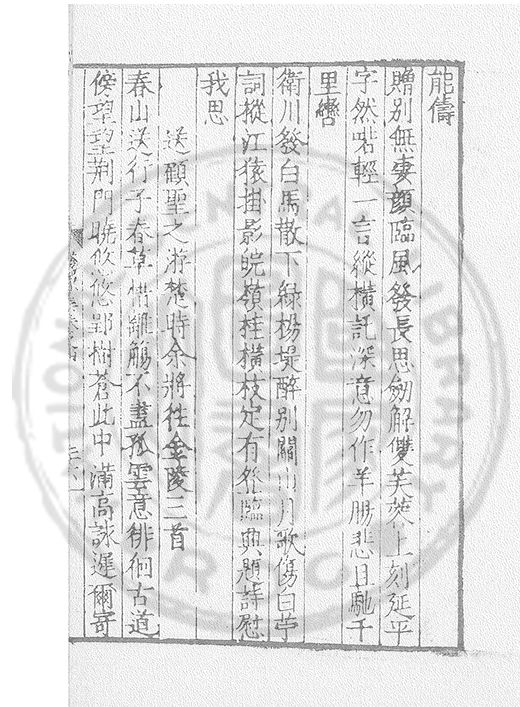 能儔
贈別無妻顏臨風發長思劒解雙芙蓉上刻延平
字然喏輕一言縱橫託深意勿作羊腸悲且馳千
里轡
衛川發白馬散下綠楊堤醉別關山月歌傷白苧
詞樅江猿抽影皖嶺桂橫枝定有登臨興題詩慰
我思
送顧聖之游楚時余將往金陵二首
春山送行子春草情離觴不盡孤雲意徘徊古道
傍望望荆門曉悠悠郢樹蒼此中滿高詠遲爾寄